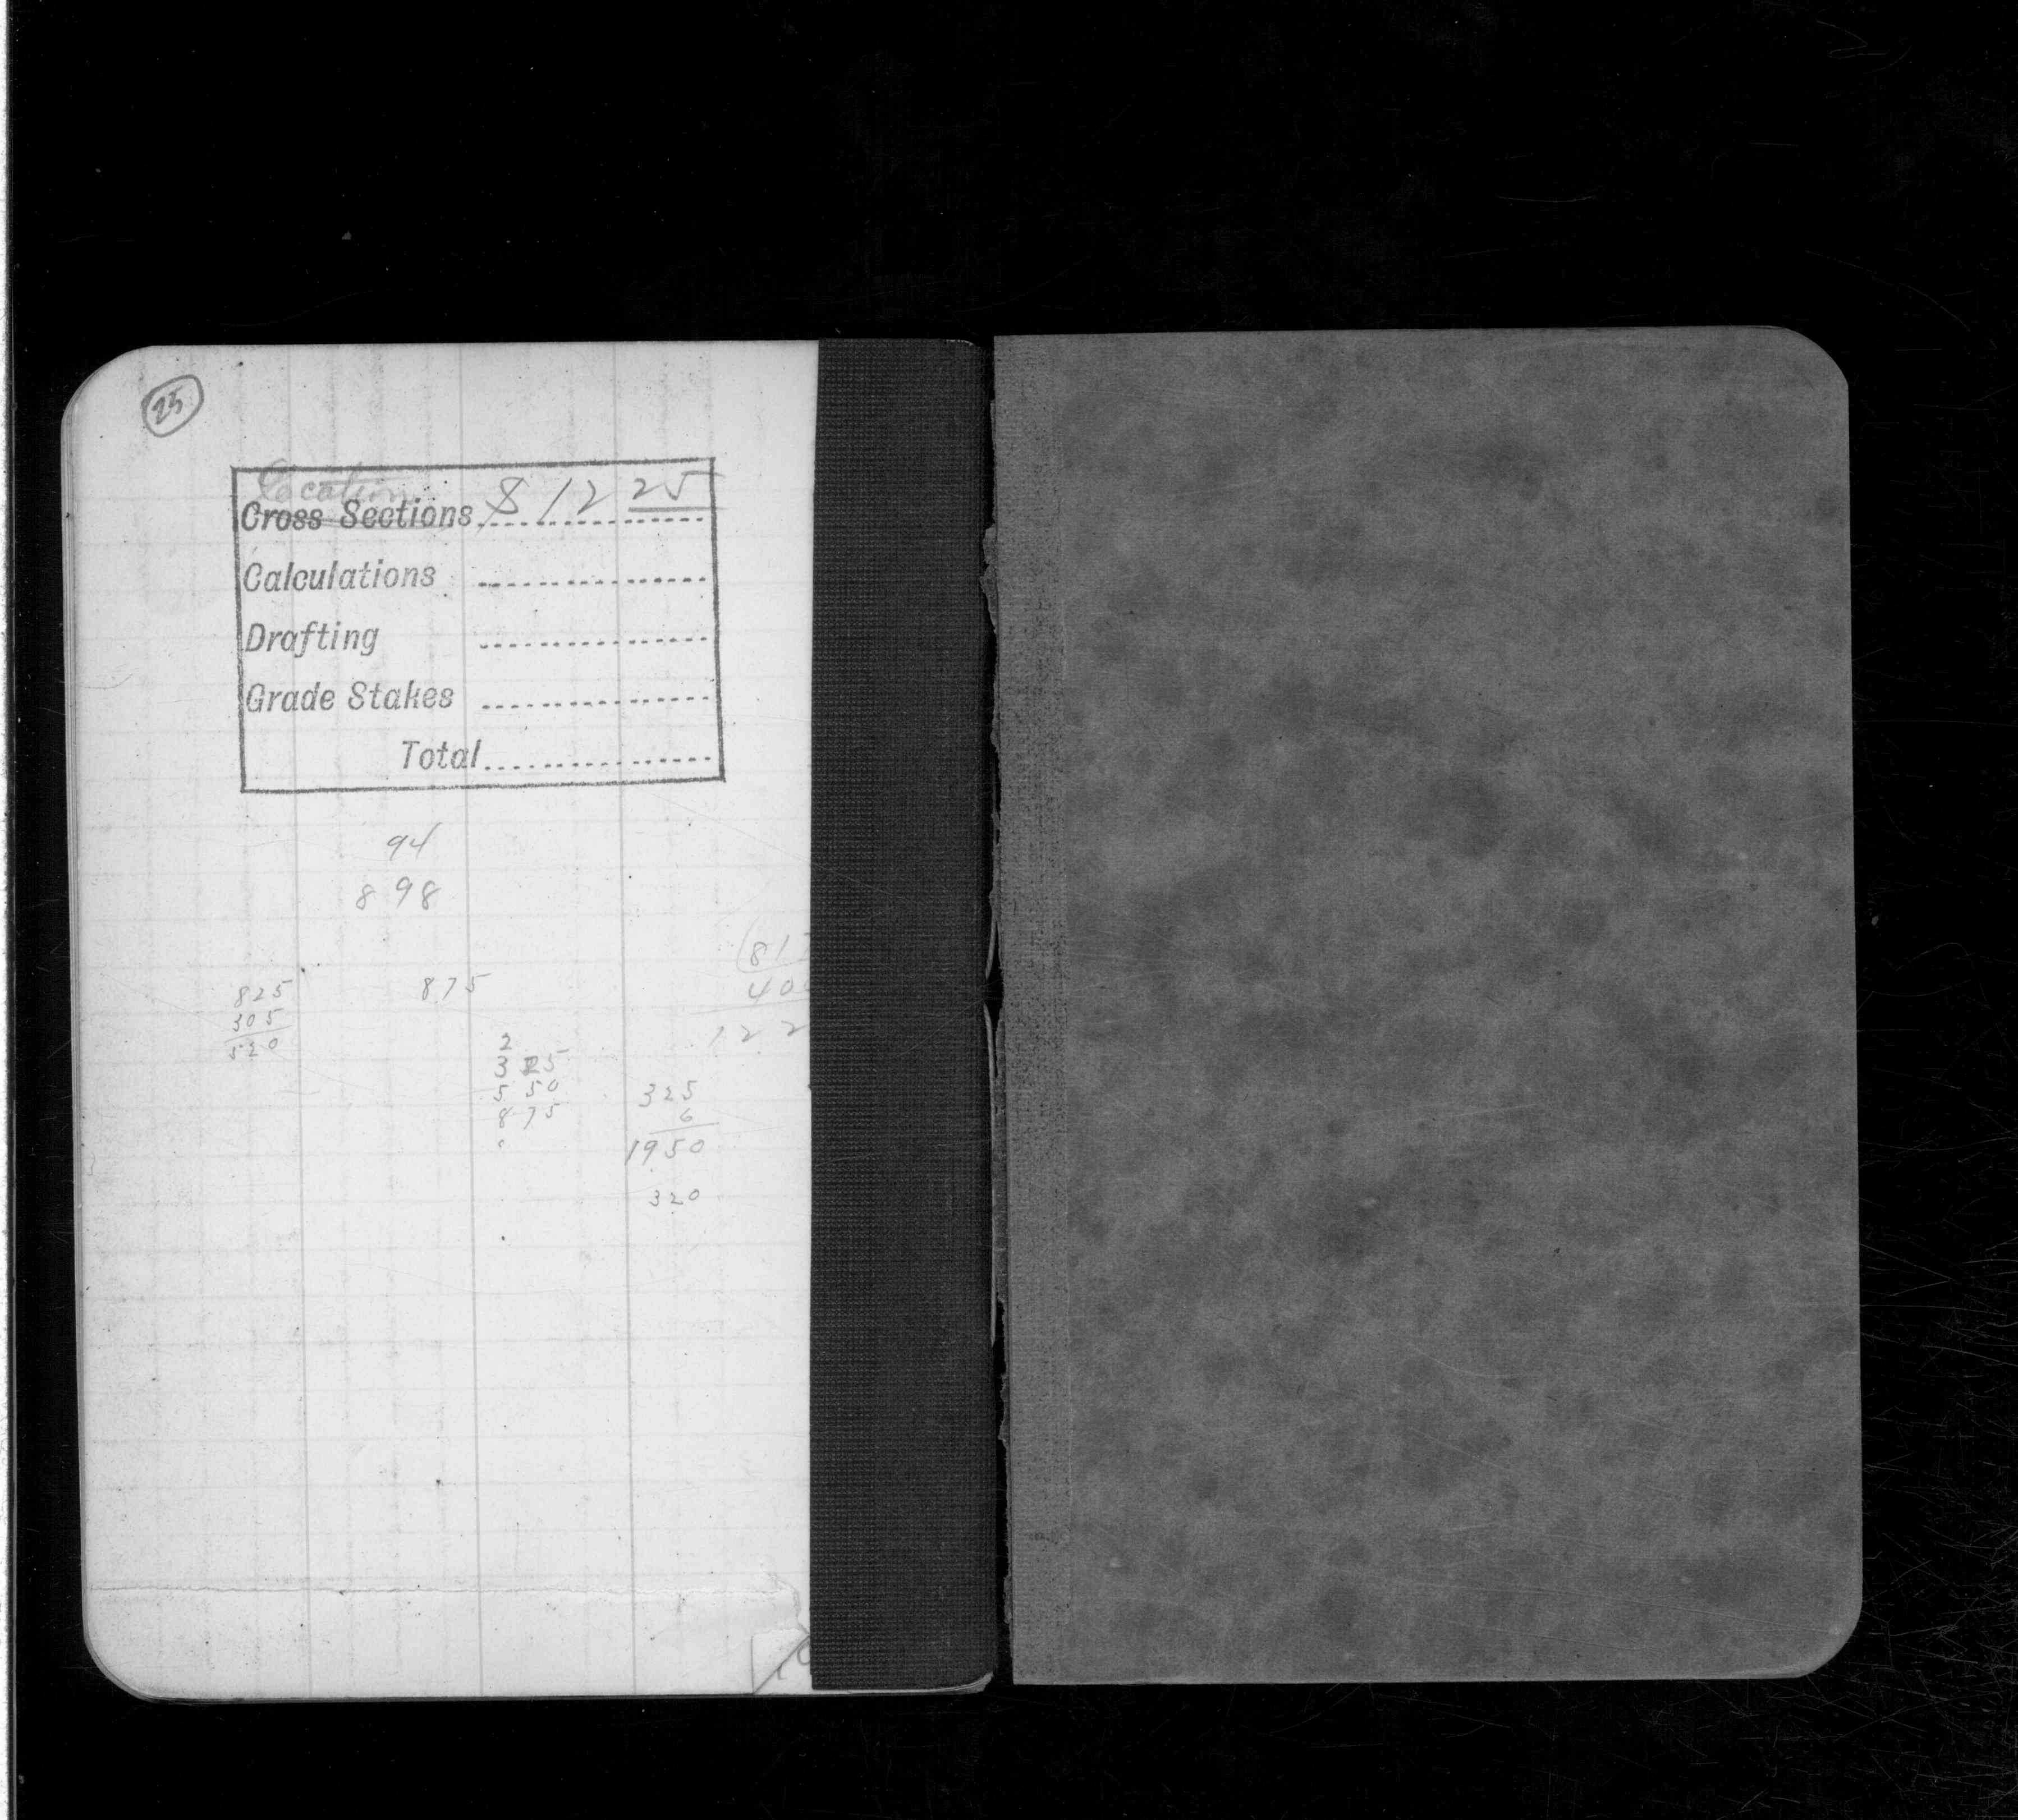 25
Location
Cross Sections $ 12 25
Calculations
Drafting
Grade Stakes
Total
94
898
81
825 875 40
305
520 122
2
325
550 325
875 6
1950
320